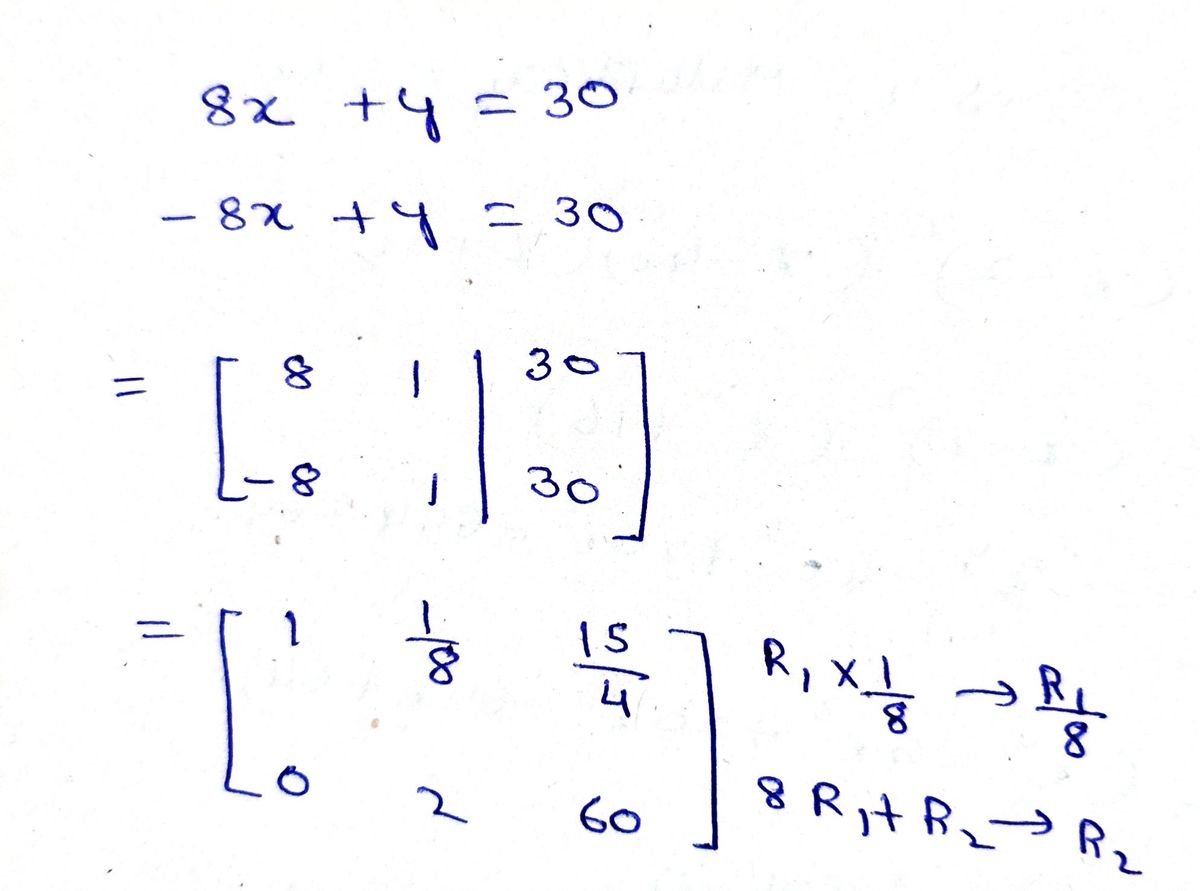 8x + y = 30
- 8x + y = 30
= [ 8 1 | 30 ]
[ -8 1 | 30 ]
= [ 1 1/8 15/4 ] R₁ × 1/8 → R₁/8
[ 0 2 60 ] 8 R₁ + R₂ → R₂